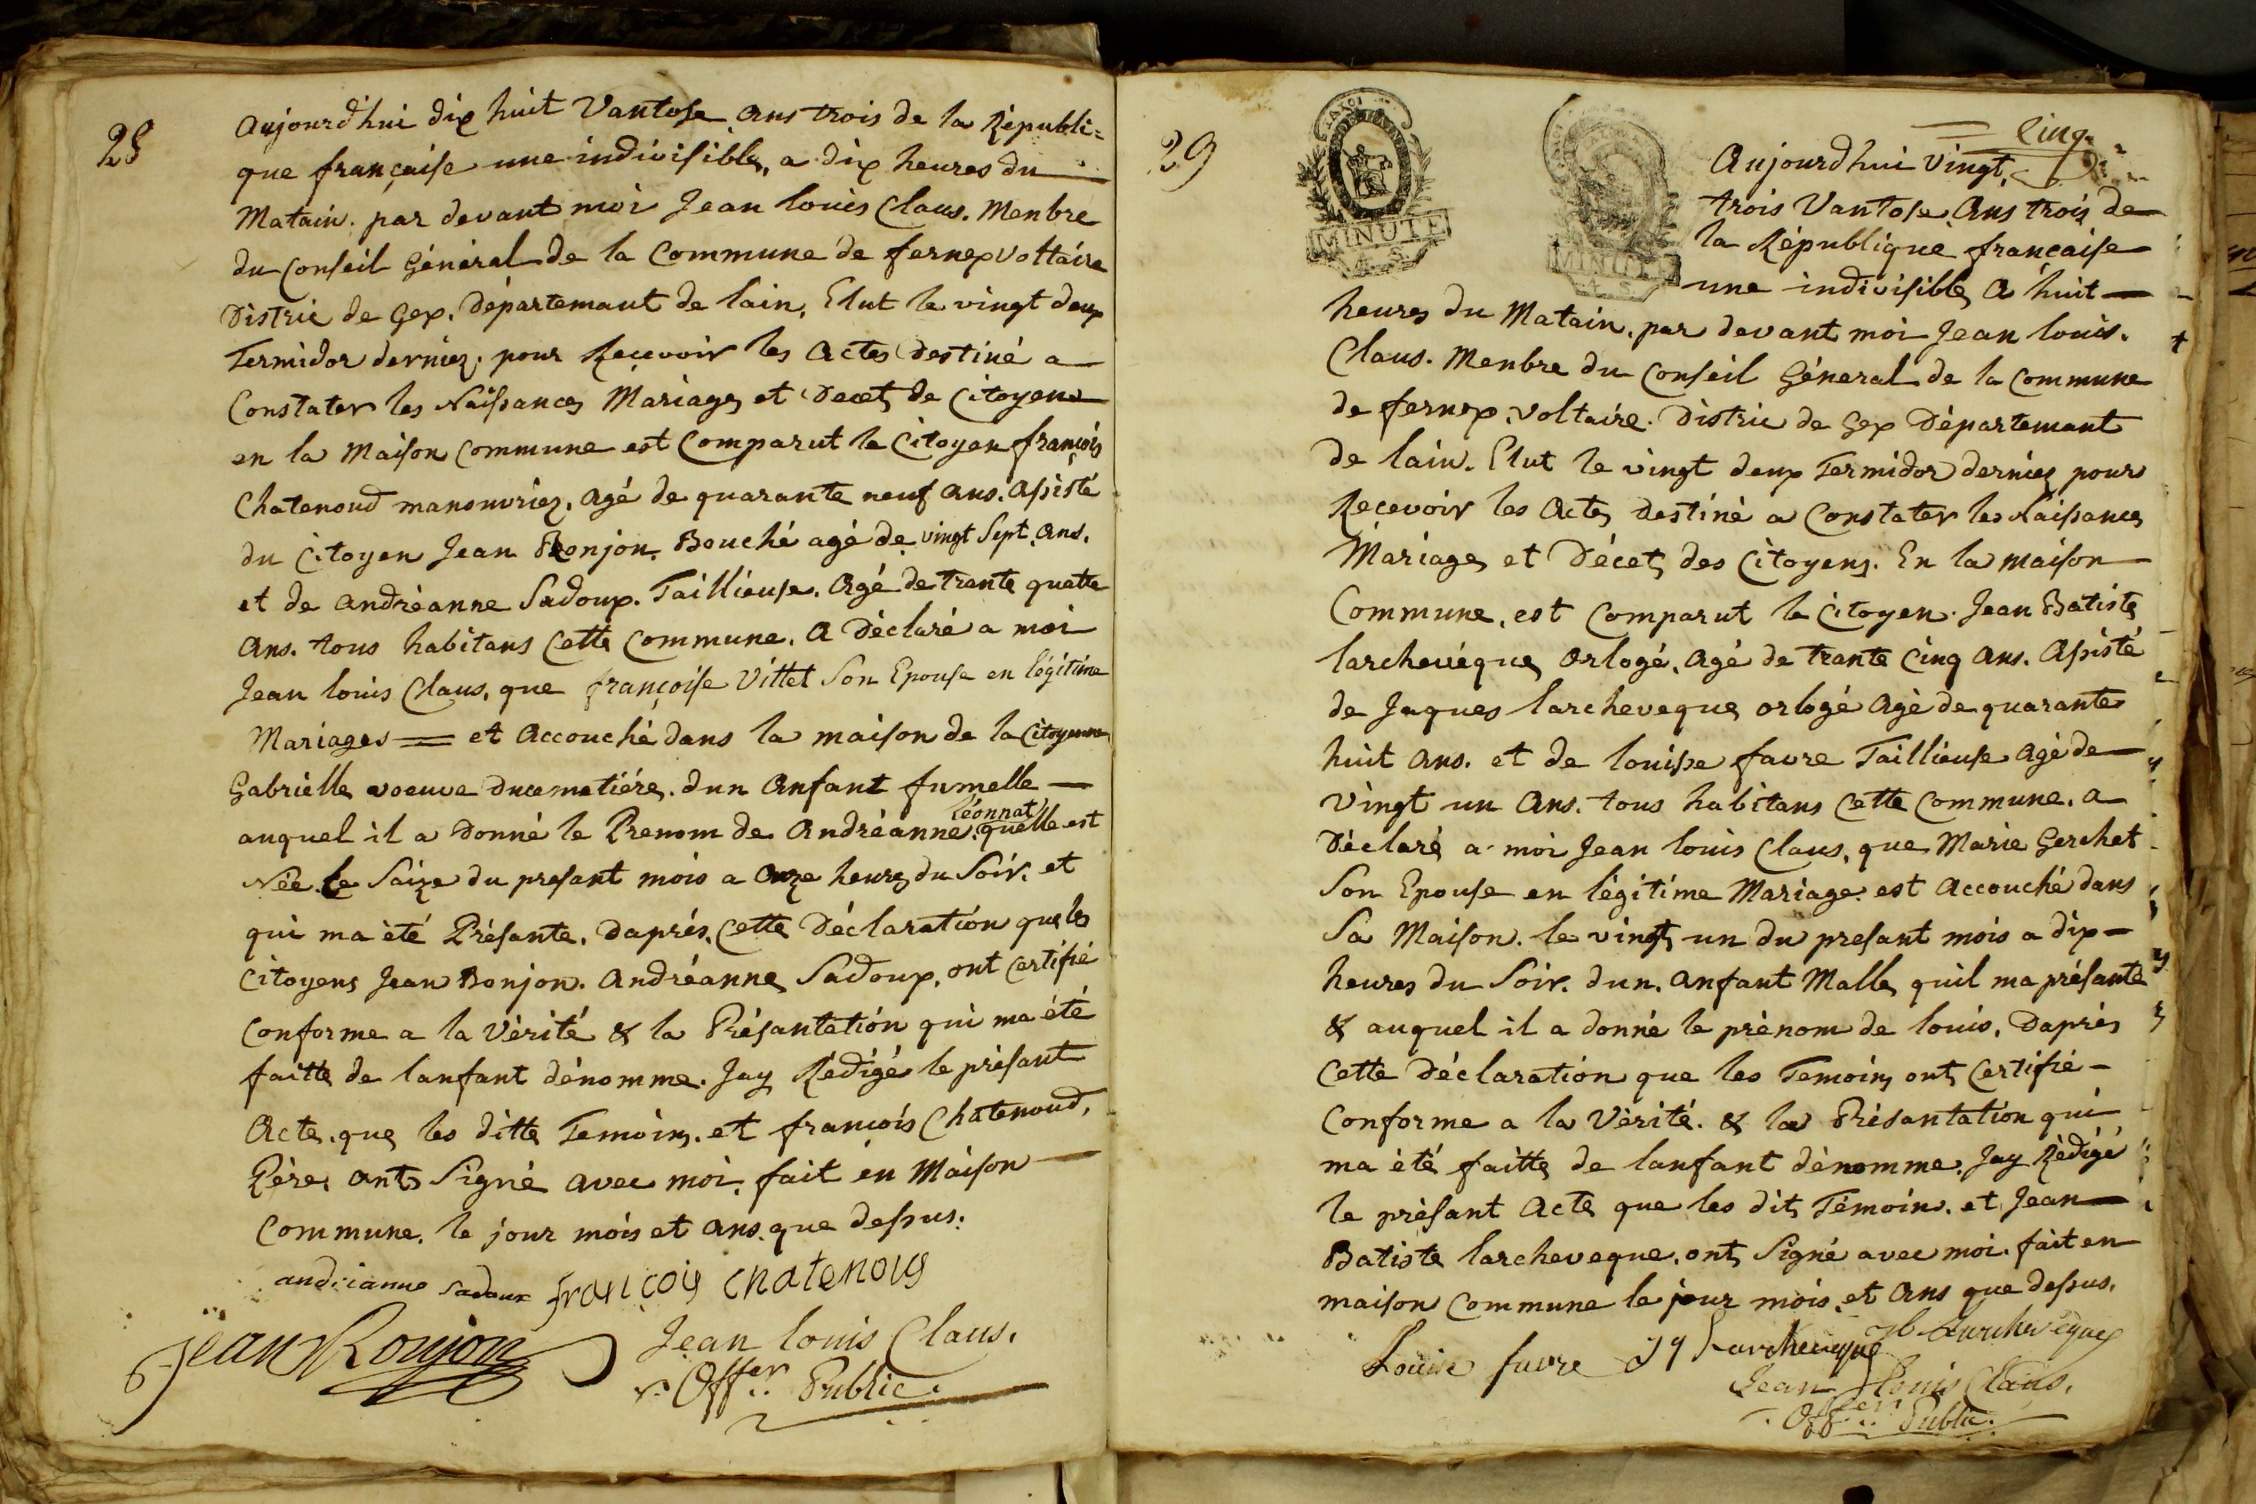 28
Aujourd'hui dix huit Vantose ans trois de la Républi=
que française une indivisible, a dix heures du
Matain. par devant moi Jean louis Claus. Menbre
du Conseil Général de la Commune de fernex voltaire
Distric de Gex. Départemant de lain. Elut le vingt deux
Termidor dernier, pour Recevoir les Actes destiné a
Constater les Naissances Mariages et Decet de Citoyens
en la Maison Commune est Comparut le Citoyen françois
Chatenoud manouvrier, agé de quarante neuf ans. Assisté
du Citoyen Jean Ronjon. Bouché agé de vingt Sept ans.
et de andréanne Sadoux. Taillieuse. Agé de trante quatte
Ans. tous habitans Cette Commune. A Déclaré a moi
Jean louis Claus, que françoise Vittet Son Epouse en légitime
Mariages = et Accouché dans la maison de la Citoyenne
Gabrielle voeuve Ducematiére. dun Anfant fumelle —
auquel il a Donné le Prenom de Andréanne. quelle est
léonnat
Née le Saize du presant mois a Onze heures du Soir. et
qui ma été Présante. Daprés Cette Déclaration que les
Citoyens Jean Bonjon. Andréanne Sadoux, ont Certifié
Conforme a la Vérité & la Présantatión qui ma été
faitte de lanfant dénomme. Jay Rédigé le présant
Acte. que les ditte Temoins. et françois Chatenoud.
Pére. ants Signé avec moi. fait en Maison
Commune. le jour mois et ans. que dessus.
andrianne sadoux françois chatenous
Jean Ronjon Jean louis Claus.
Offer. Public.
29
MINUTE
4. S.
MINUTE
4. S.
Cinq.
Aujourd'hui vingt.
trois Vantose Ans trois de
la République française
une indivisible, A huit
heures du Matain. par devant moi Jean louis.
Claus. Menbre du Conseil Géneral de la Commune
de fernex. voltaire. Distric de Gex Départemant
de lain. Elut le vingt deux Termidor dernier pour
Recevoir les Actes destiné a Constater les Naissances
Mariages et Décet des Citoyens. En la maison
Commune, est Comparut le Citoyen. Jean Batiste
larchevéque Orlogé. Agé de trante Cinq ans. Assisté
de Jaques larcheveque orlogé Agé de quarante
huit ans. et de louisse favre Taillieuse agé de
vingt un Ans. tous habitans Cette Commune. a
Déclaré a moi Jean louis Claus, que Marie Gerchet
Son Epouse en légitime Mariage. est Accouché dans
Sa Maison. le vingt un du presant mois a dix
heures du Soir. dun. Anfant Malle quil ma présante
& auquel il a donné le prénom de louis. Daprés
Cette Déclaration que les Temoins ont Certifié
Conforme a la Vérité. & la Présantatión qui
ma été faitte de lanfant dénomme. Jay Rédigé
le présant Acte que les dits Témoins. et Jean
Batiste larcheveque. ont Signé avec moi. fait en
maison Commune le jour mois et Ans que dessus.
Louise favre Jq Larcheveque Jb Larcheveque
Jean Louis Claus.
Offer. Public.